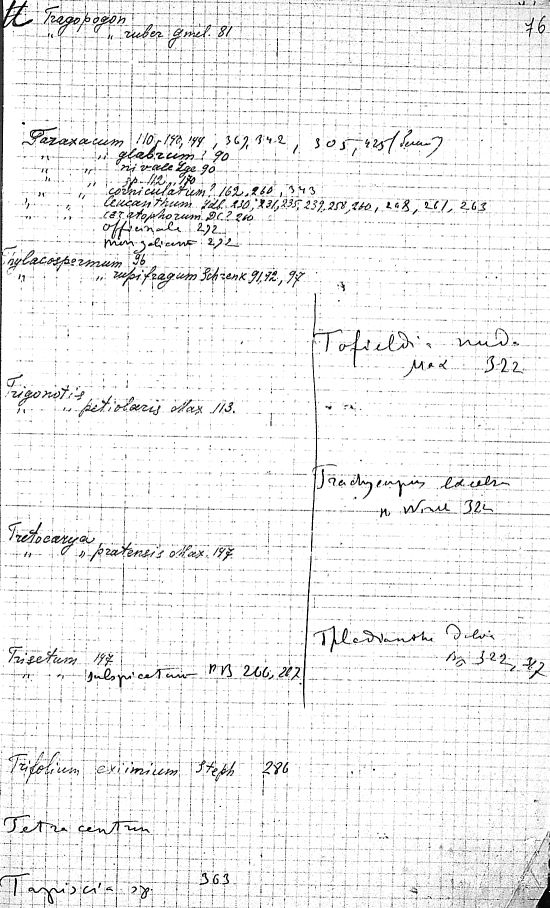 Tt Tragopogon
" " ruber Gmel. 81
76
Taraxacum 110, 140, 144, 367, 342, 305, 425
" " glabrum? 90
" " nivale Lge 90
" " sp. 112, 170
" " corniculatum? 162, 260, 343
" " leucanthum Ldb. 230, 231, 235, 237, 258, 260, 268, 261, 263
" " ceratophorum DC? 260
officinale 272
mongolicum 272
Thylacospermum 96
" " rupifragum Schrenk 91, 92, 97
Tofieldia nuda
Max 322
Trigonotis
" " petiolaris Max 113.
Trachycarpus excelsa
H Wendl 322
Tretocarya
" " pratensis Max. 147
Thladiantha
322,
Trisetum 147
" " subspicatum PB 266, 287
Trifolium eximium Steph 286
Tetracentron
Tapiscia sp. 363